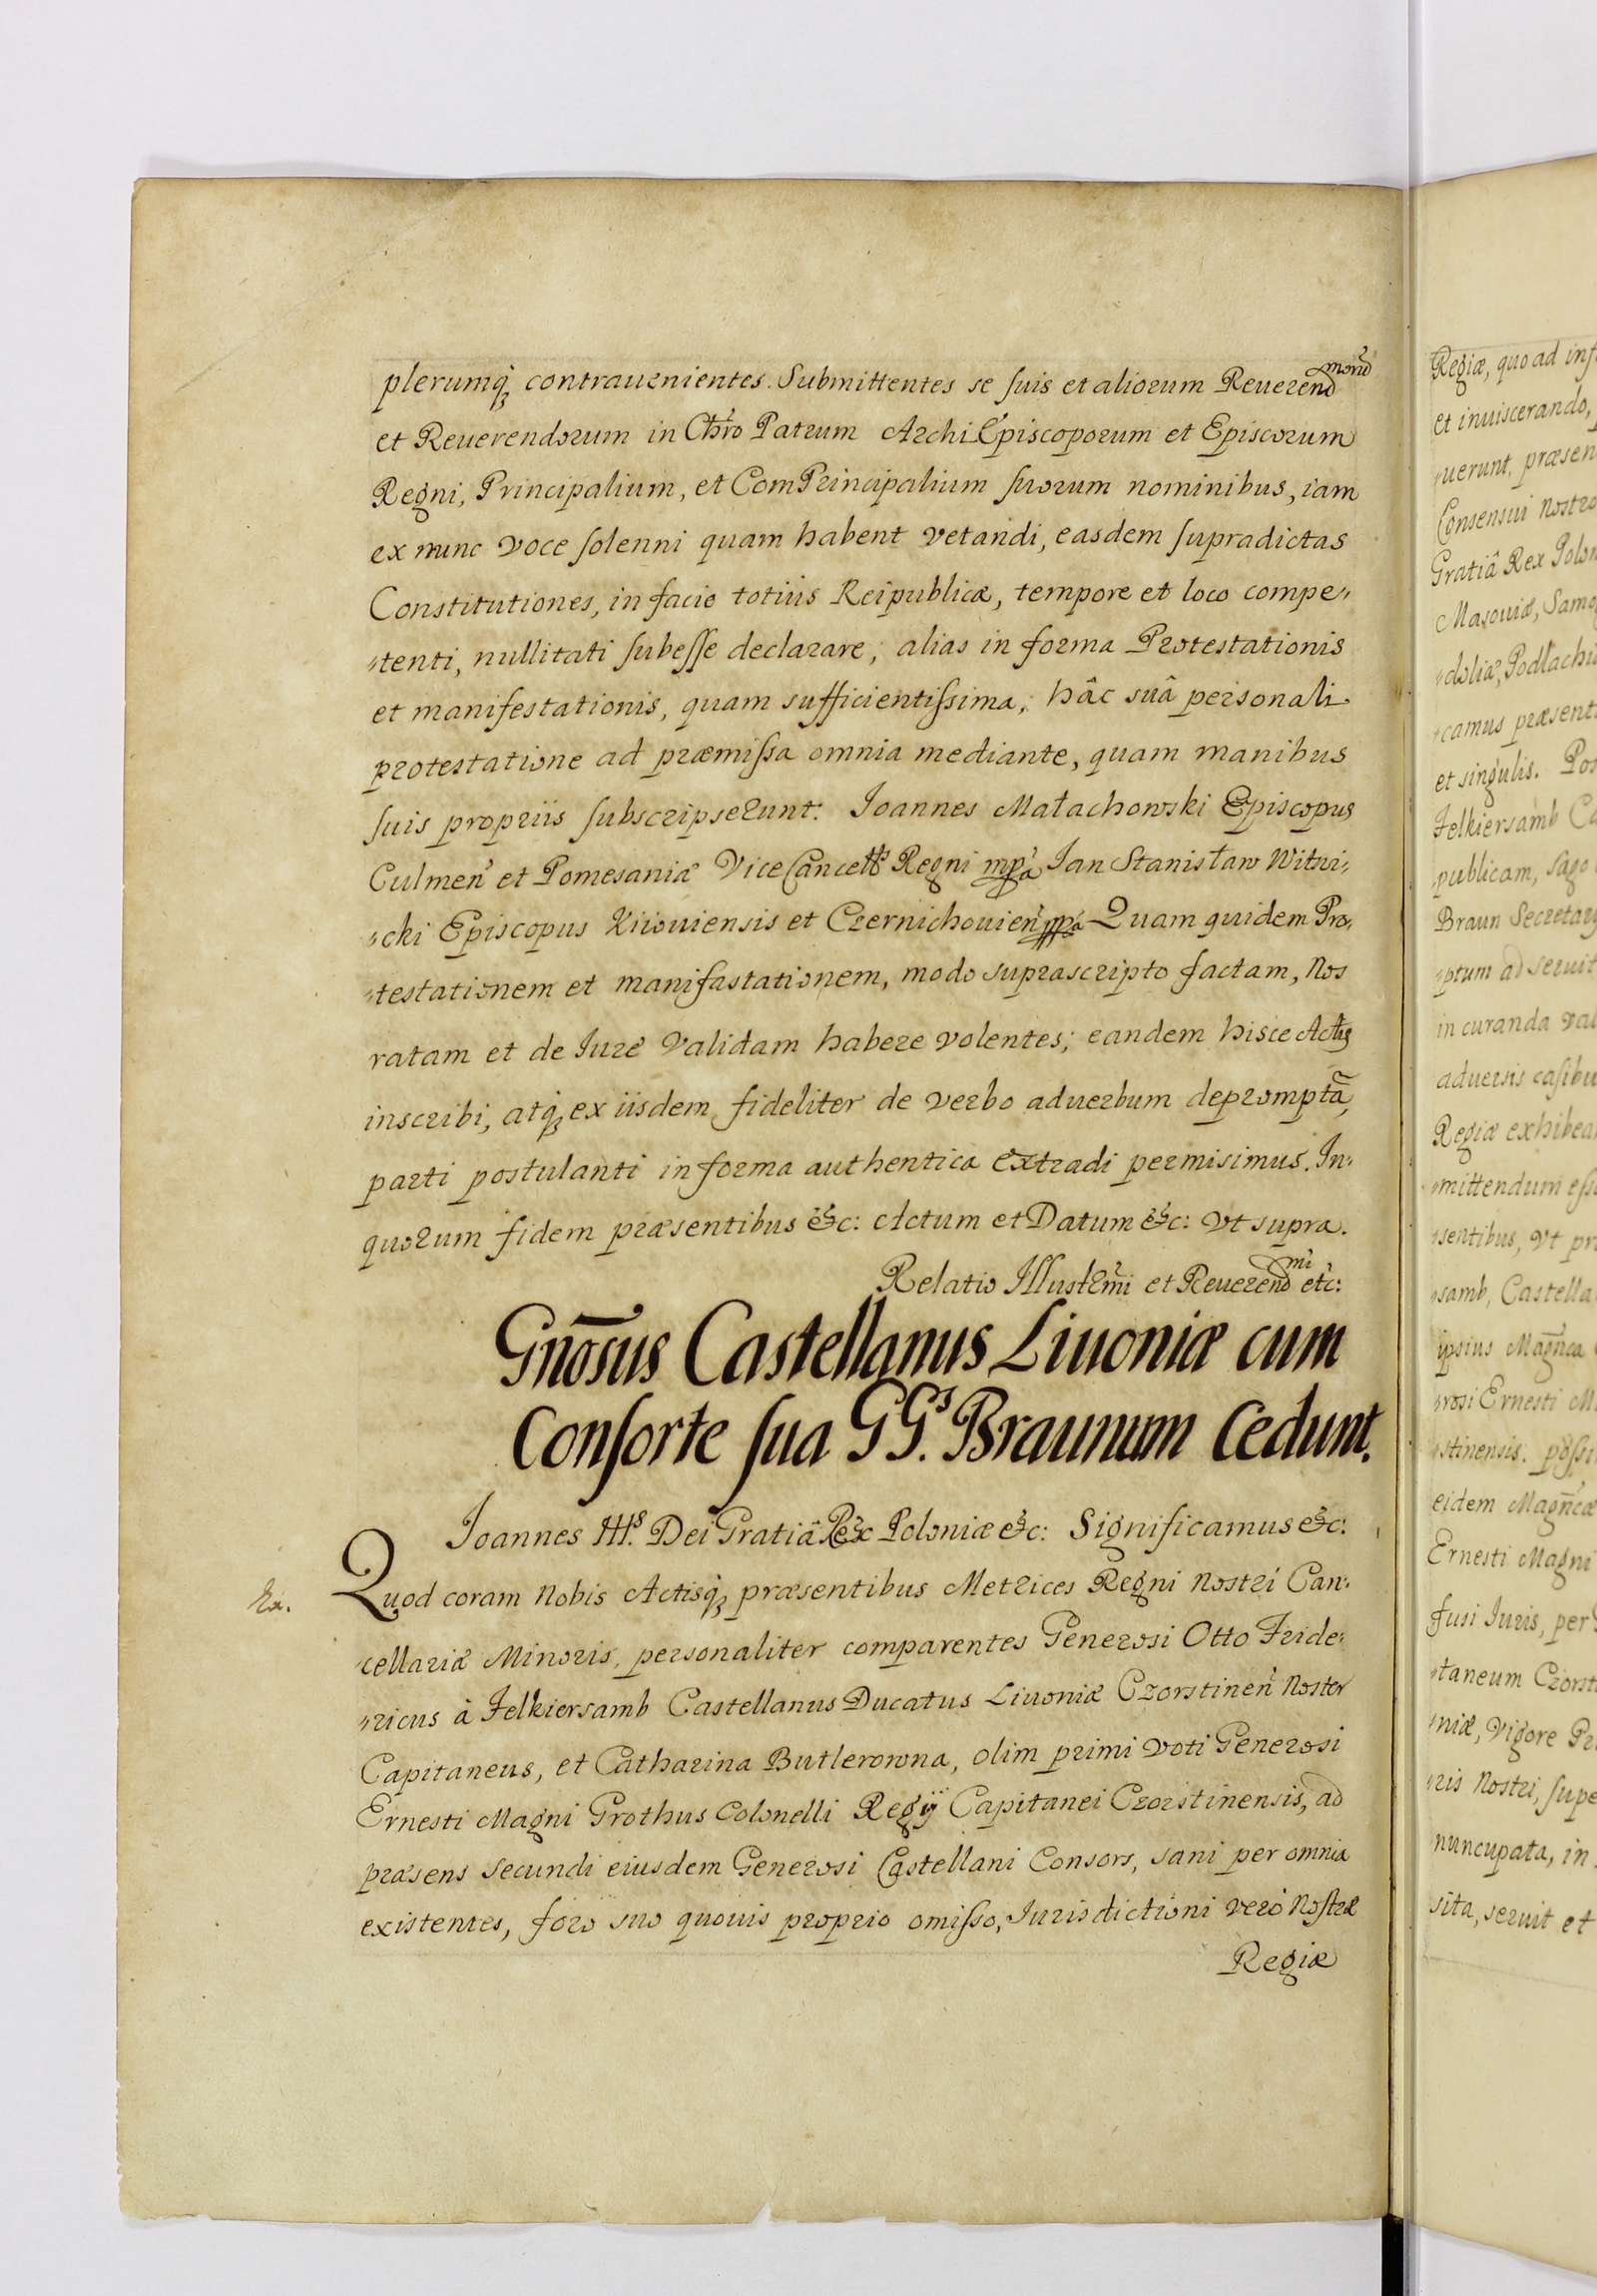 plerumq́ꝫ contrauenientes. Submittentes se suis et aliorum Reuerendmorũ
et Reuerendorum in Chr̃o Patrum ArchiEpiscoporum et Episcorum
Regni, Principalium, et ComPrincipalium suorum nominibus, iam
ex nunc voce solenni quam habent vetandi, easdem supradictas
Constitutiones, in facie totius Reipublicæ, tempore et loco compe„
„tenti, nullitati subesse declarare; alias in forma Protestationis
et manifestationis, quam sufficientissima, hâc suâ personali
protestatione ad præmissa omnia mediante, quam manibus
suis propriis subscripserunt: Ioannes Małachowski Episcopus
Culmeñ et Pomesaniæ ViceCancells Regni mpa Jan Stanisław Witwi„
„cki Episcopus Kiiouiensis et Czernichouieñ mpa Quam quidem Pro„
„testationem et manifastationem, modo suprascripto factam, Nos
ratam et de Iure validam habere volentes; eandem hisce Actis
inscribi, atq́ꝫ ex iisdem fideliter de verbo aduerbum depromptã,
parti postulanti in forma authentica extradi permisimus. In„
quorum fidem præsentibus &c: Actum et Datum &c: vt supra.
Relatio Illustrm̃i et Reuerendmi etc:
Gnõsus Castellanus Liuoniæ cum
Consorte sua GGs. Braunum Cedunt.
Joannes IIIs. Dei Gratiâ Rex Poloniæ &c: Significamus &c:
Quod coram Nobis Actisq́ꝫ præsentibus Metrices Regni Nostri Can„
„cellariæ Minoris, personaliter comparentes Generosi Otto Fride„
„ricus à Felkiersamb Castellanus Ducatus Liuoniæ Czorstineñ Noster
Capitaneus, et Catharina Butlerowna, olim primi voti Generosi
Ernesti Magni Grothus Colonelli Regÿ Capitanei Czorstinensis, ad
præsens secundi eiusdem Generosi Castellani Consors, sani per omnia
existentes, foro suo quouis proprio omisso, Iurisdictioni verò Nostræ
Regiæ
Regiæ, quo ad inf
et inuiscerando,
„uerunt, præsen
Consensui Nostro
Gratiâ Rex Polon
Masouiæ, Samo
„doliæ, Podlachi
„camus præsent
et singulis. Pos
Felkiersamb Ca
„publicam, Sago
Braun Secretary
„ptum ad seruit
in curanda val
aduersis casibu
Regiæ exhibea
„mittendum ess
„sentibus, vt pr
„samb, Castella
ipsius Magñca
„rosi Ernesti M
„stinensis. posse
eidem Magñcæ
Ernesti Magni
fusi Iuris, per
„taneum Czorst
„niæ, vigore Pr
„ris Nostri, supe
nuncupata, in
sita, seruit et